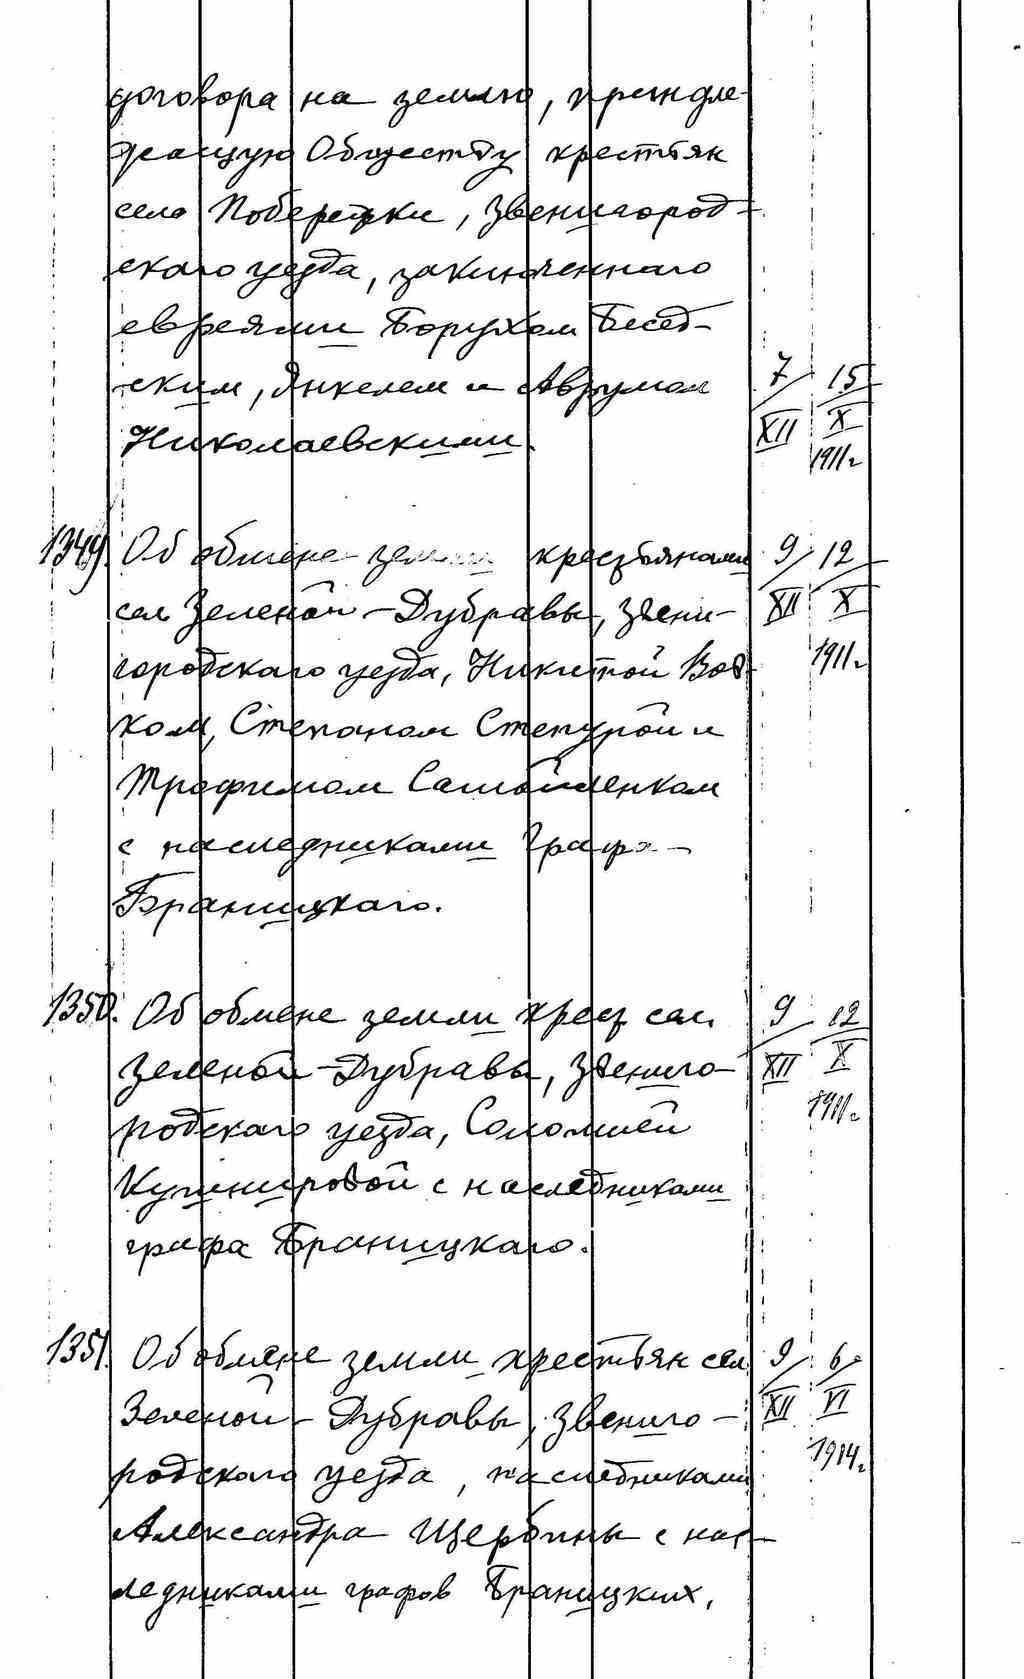 договора на землю, принадле-
жащую Обществу крестьян
село Поберезки, Звенигород-
скаго уезда, заключеннаго
евреями Борухом Бесед-
ским, Янкелем и Аврумом
Николаевскими.
7 15
XII X
1911 г
1349. Об обмене земли крестьянами 9 12
сел Зеленой-Дубравы, Звени- XII X
городскаго уезда, Никитой Вов- 1911 г
ком, Степаном Степурой и
Трофимом Самойленком
с наследниками Графа
Браницкаго.
1350. Об обмене земли крест сел. 9 12
Зеленой-Дубравы, Звениго- XII X
родскаго уезда, Соломией 1911 г
Кушнировой с наследниками
графа Браницкаго.
1351. Об обмене земли крестьян сел 9 6
Зеленой-Дубравы, Звениго- XII VI
родскаго уезда, наследниками 1914 г
Александра Щербины с нас-
ледниками графов Браницких,